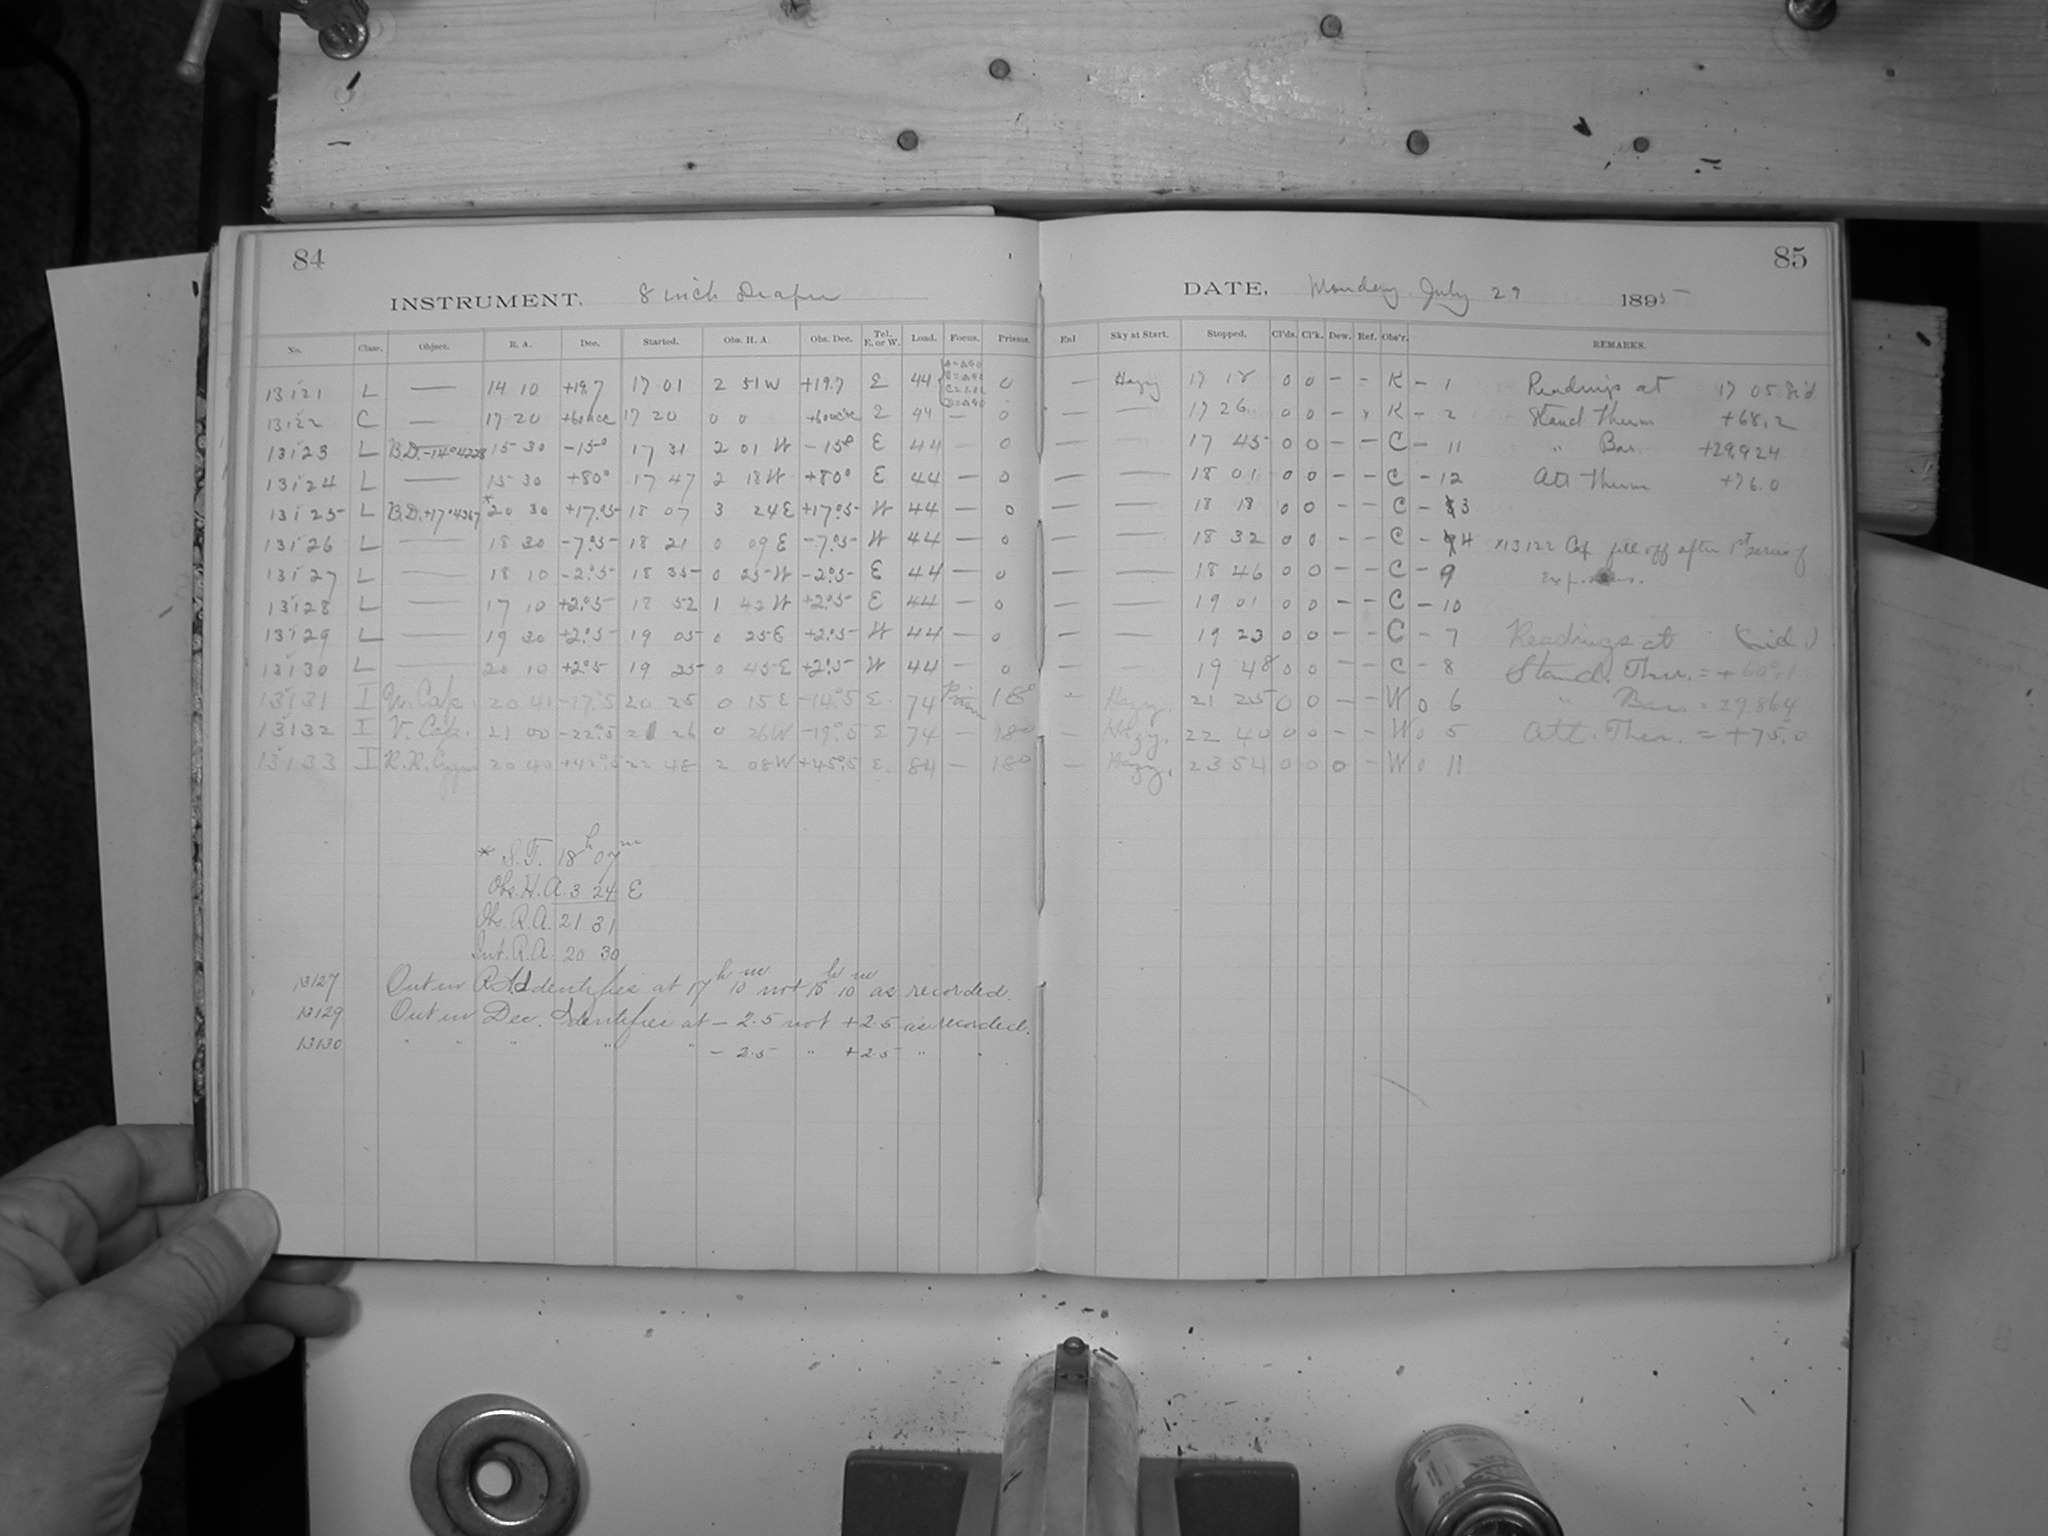 84
85
INSTRUMENT. 8 inch Draper
DATE, Monday July 29 1895
No. Class. Object. R. A. Dec. Started. Obs. H. A. Obs. Dec. Tel. E. or W. Load. Focus. Prisms. Enl Sky at Start. Stopped. Cl'ds. Cl'k. Dew. Ref. Obs'r. REMARKS.
13121 L — 14 10 +19.7 17 01 2 51 W +19.7 E 44 0 — Hazy 17 18 0 0 - - K - 1 Readings at 17 05 Sid
13122 C — 17 20 17 20 0 0 E 44 — 0 — — 17 26 0 0 - x K - 2 Stand Therm +68.2
13123 L B.D. -14°4228 15 30 -15° 17 31 2 01 W -15° E 44 — 0 — — 17 45 0 0 - - C - 11 " Bar. +29.924
13124 L — 15 30 +80° 17 47 2 18 W +80° E 44 — 0 — — 18 01 0 0 - - C - 12 Att Therm +76.0
13125 L B.D. +17°4367 * 20 30 +17.°5 18 07 3 24 E +17.°5 W 44 — 0 — — 18 18 0 0 - - C - 3
13126 L — 18 30 -7.°5 18 21 0 09 E -7.°5 W 44 — 0 — — 18 32 0 0 - - C - 4 x13122 Cap fell off after 1st series of
13127 L — 18 10 -2.°5 18 35 0 25 W -2.°5 E 44 — 0 — — 18 46 0 0 - - C - 9 exposures.
13128 L — 17 10 +2.°5 18 52 1 42 W +2.°5 E 44 — 0 — — 19 01 0 0 - - C - 10
13129 L — 19 30 +2.°5 19 05 0 25 E +2.°5 W 44 — 0 — — 19 23 0 0 - - C - 7 Readings at (Sid.)
13130 L — 20 10 +2.°5 19 25 0 45 E +2.°5 W 44 — 0 — — 19 48 0 0 - - C - 8 Stand. Ther. =
13131 I Cap. 20 40 -17.°5 20 25 0 15 E -14.°5 E. 74 Prism 18° - Hazy. 21 25 0 0 - - W 0 6 " Bar. = 29.864
13132 I V. Cap. 21 00 -22.°5 21 26 0 26 W -19.°5 E 74 — 18° — Hazy. 22 40 0 0 - - W 0 5 Att. Ther. = +75.0
13133 I R.R. Cygni 20 40 22 48 2 08 W +45.°5 E. 84 — 18° — Hazy. 23 54 0 0 0 - W 0 11
* S.T. 18h 07m
Obs. H.A. 3 24 E
Obs. R.A. 21 31
Int. R.A. 20 30
13127 Out in R.A. Identifies at 17h 10m not 18h 10m as recorded.
13129 Out in Dec. Identifies at - 2.5 not +2.5 as recorded.
13130 " " " " " - 2.5 " +2.5 " "